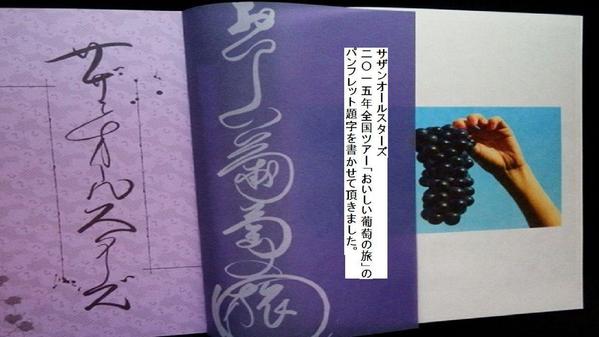 サザンオールスターズ
二〇一五年全国ツアー「おいしい葡萄の旅」の
パンフレット題字を書かせて頂きました。
おいしい葡萄の旅
サザンオールスターズ